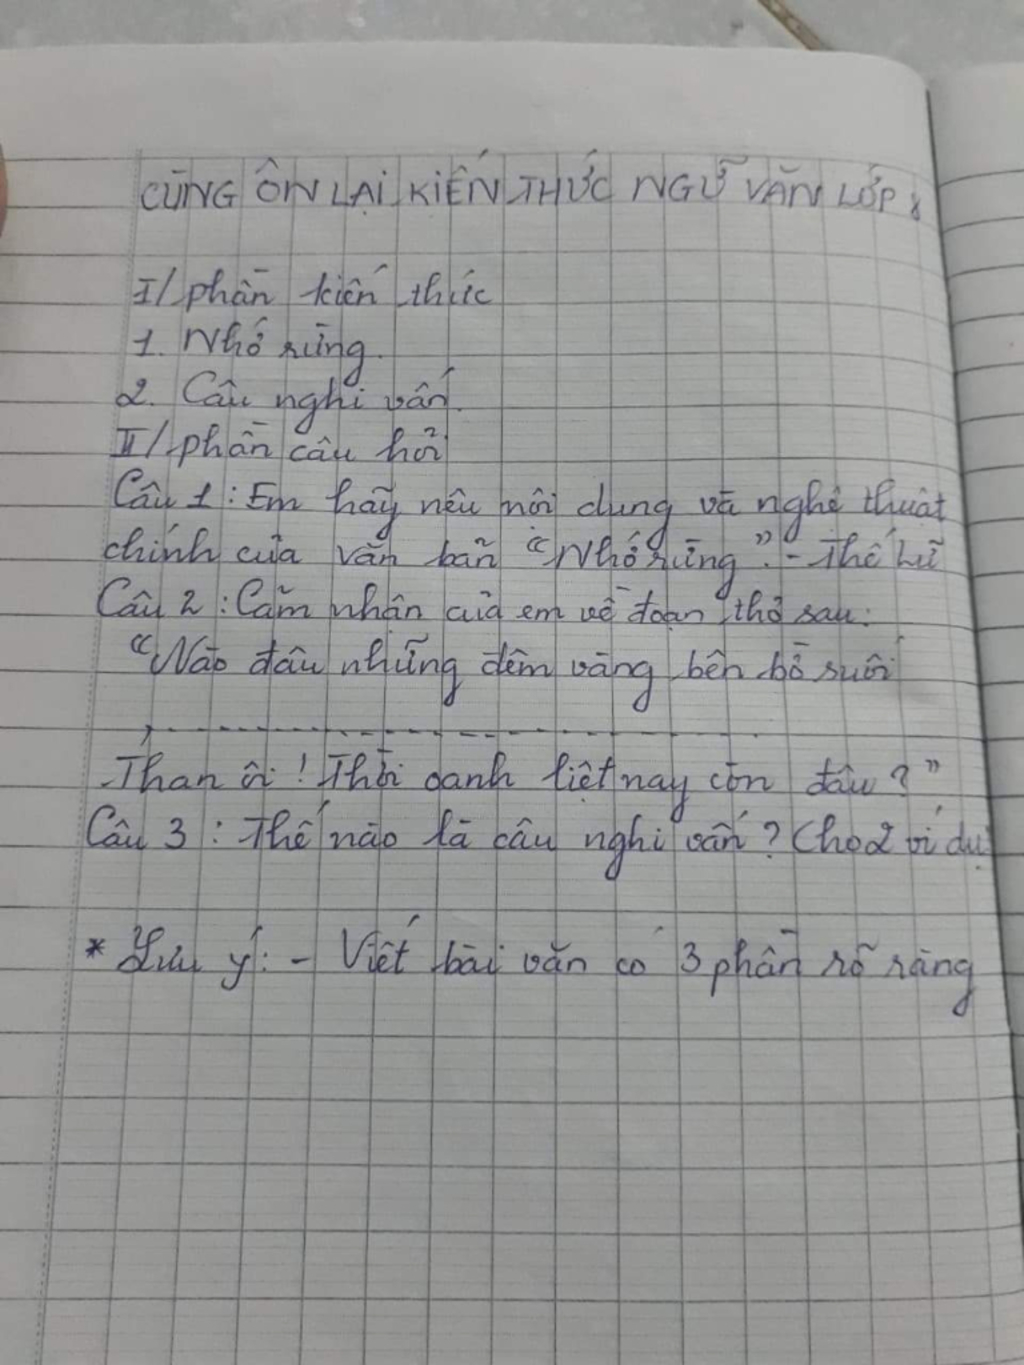 CÙNG ÔN LẠI KIẾN THỨC NGỮ VĂN LỚP 8
I/ phần kiến thức
1. Nhớ rừng.
2. Câu nghi vấn.
II/ phần câu hỏi
Câu 1: Em hãy nêu nội dung và nghệ thuật
chính của văn bản "Nhớ rừng". - Thế Lữ
Câu 2: Cảm nhận của em về đoạn thơ sau:
"Nào đâu những đêm vàng bên bờ suối
Than ôi! Thời oanh liệt nay còn đâu?"
Câu 3: Thế nào là câu nghi vấn? Cho 2 ví dụ
* Lưu ý: - Viết bài văn có 3 phần rõ ràng